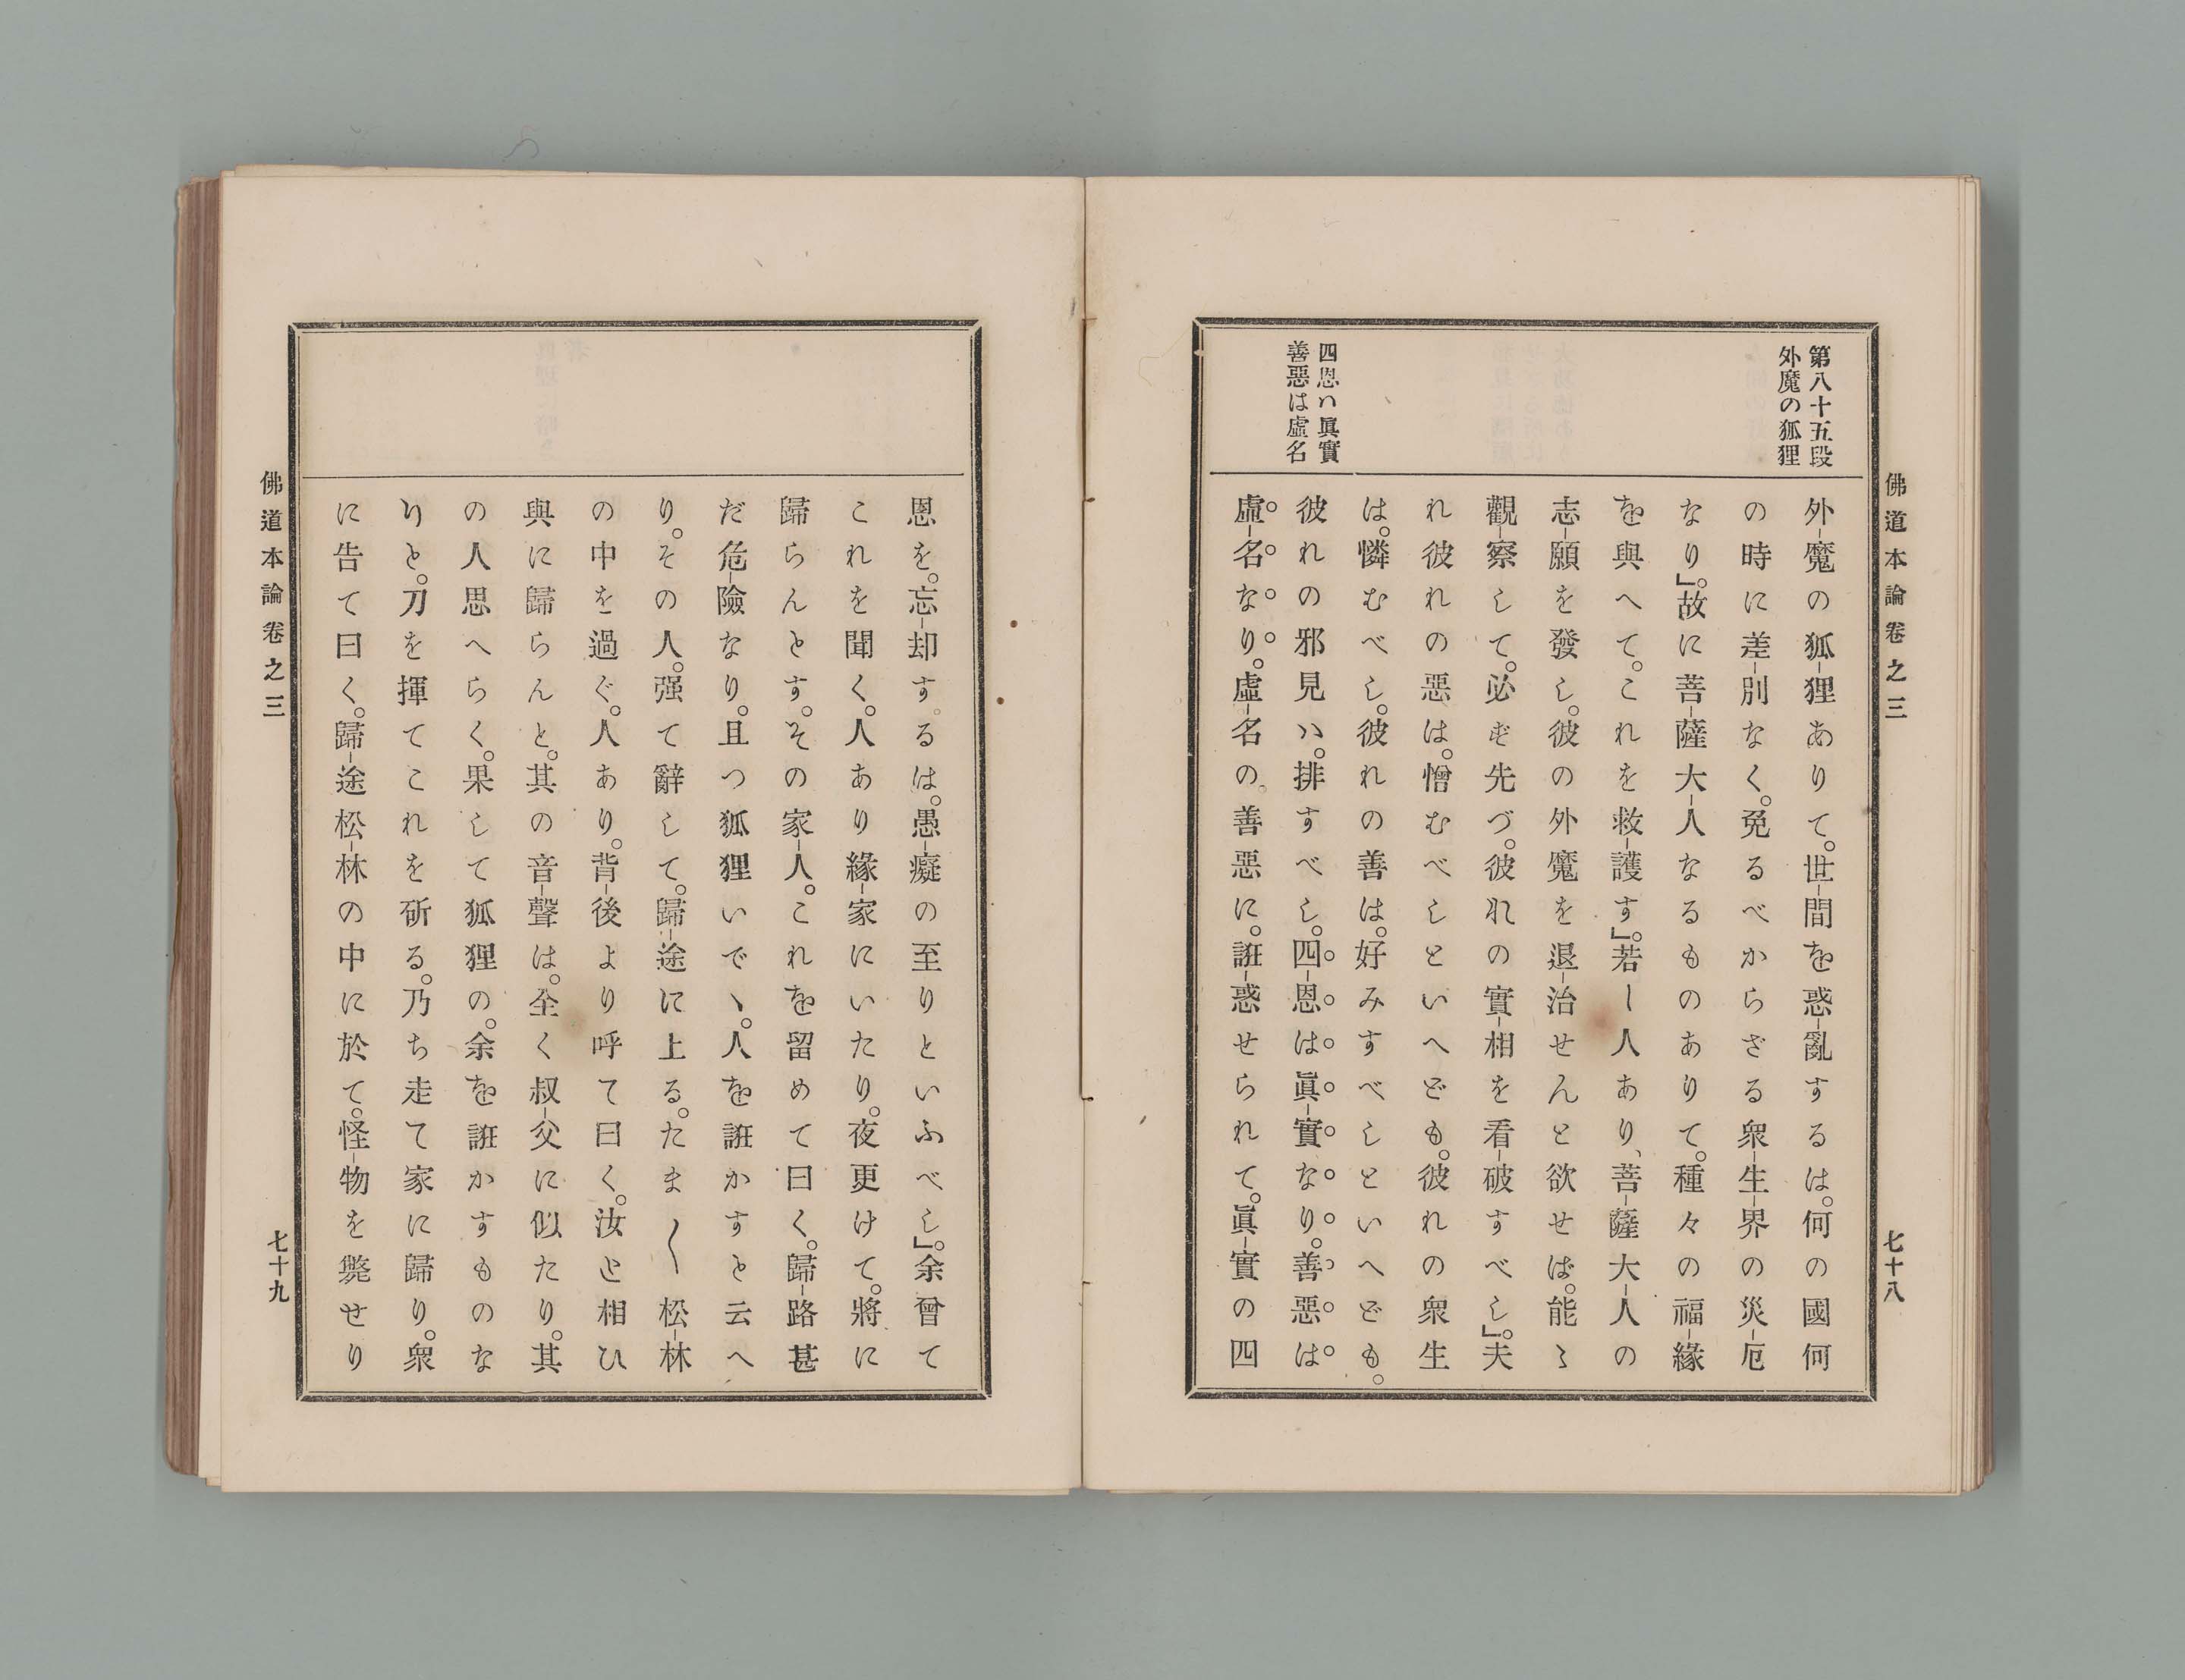 佛道本論卷之三
七十八
第八十五段
外魔の狐狸
四恩ハ眞實
善惡は虛名
外魔の狐狸ありて。世間を惑亂するは。何の國何
の時に差別なく。免るべからざる衆生界の災厄
なり』。故に菩薩大人なるものありて。種々の福緣
を與へて。これを救護す』。若し人あり、菩薩大人の
志願を發し。彼の外魔を退治せんと欲せば。能く
觀察して。必ず先づ。彼れの實相を看破すべし』。夫
れ彼れの惡は。憎むべしといへども。彼れの衆生
は。憐むべし。彼れの善は。好みすべしといへども。
彼れの邪見ハ。排すべし。四恩は眞實なり。善惡は
虛名なり。虛名の善惡に。誑惑せられて。眞實の四
恩を。忘却す。るは。愚癡の至りといふべし』。余曾て
これを聞く。人あり緣家にいたり。夜更けて。將に
歸らんとす。その家人。これを留めて曰く。歸路甚
だ危險なり。且つ狐狸いでゝ。人を誑かすと云へ
り。その人。强て辭して。歸途に上る。たま〱松林
の中を過ぐ。人あり。背後より呼て曰く。汝と相ひ
與に歸らんと。其の音聲は。全く叔父に似たり。其
の人思へらく。果して狐狸の。余を誑かすものな
りと。刀を揮てこれを斫る。乃ち走て家に歸り。衆
に告て曰く。歸途松林の中に於て。怪物を斃せり
佛道本論卷之三
七十九